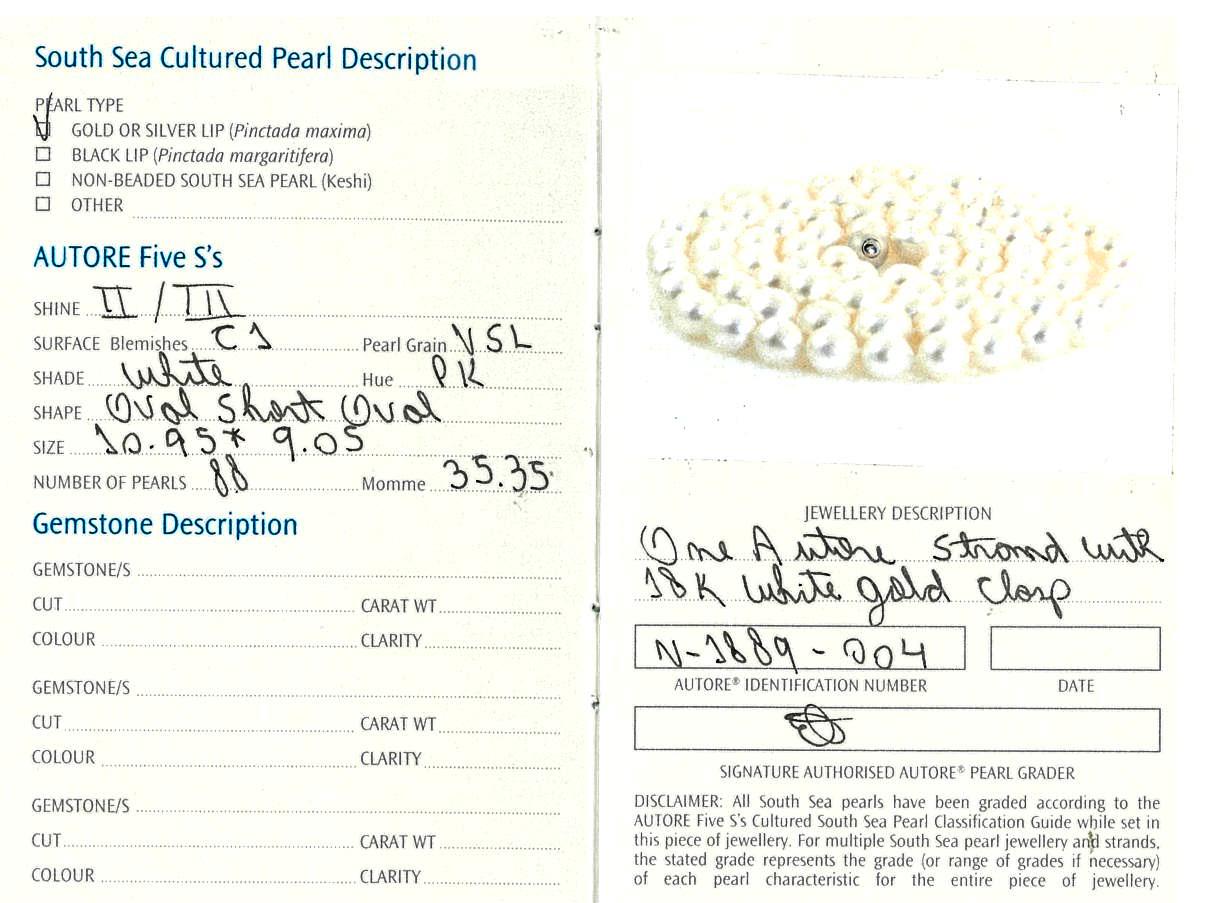 South Sea Cultured Pearl Description
PEARL TYPE
GOLD OR SILVER LIP (Pinctada maxima)
BLACK LIP (Pinctada margaritifera)
NON-BEADED SOUTH SEA PEARL (Keshi)
OTHER
AUTORE Five S's
SHINE II / III
SURFACE Blemishes C1 Pearl Grain VSL
SHADE White Hue PK
SHAPE Oval Short Oval
SIZE 10.95* 9.05
NUMBER OF PEARLS 88 Momme 35.35
Gemstone Description
GEMSTONE/S
CUT CARAT WT
COLOUR CLARITY
GEMSTONE/S
CUT CARAT WT
COLOUR CLARITY
GEMSTONE/S
CUT CARAT WT
COLOUR CLARITY
JEWELLERY DESCRIPTION
One Autore Strand with
18K White gold Clasp
N-1889-004
AUTORE® IDENTIFICATION NUMBER DATE
SIGNATURE AUTHORISED AUTORE® PEARL GRADER
DISCLAIMER: All South Sea pearls have been graded according to the
AUTORE Five S's Cultured South Sea Pearl Classification Guide while set in
this piece of jewellery. For multiple South Sea pearl jewellery and strands,
the stated grade represents the grade (or range of grades if necessary)
of each pearl characteristic for the entire piece of jewellery.